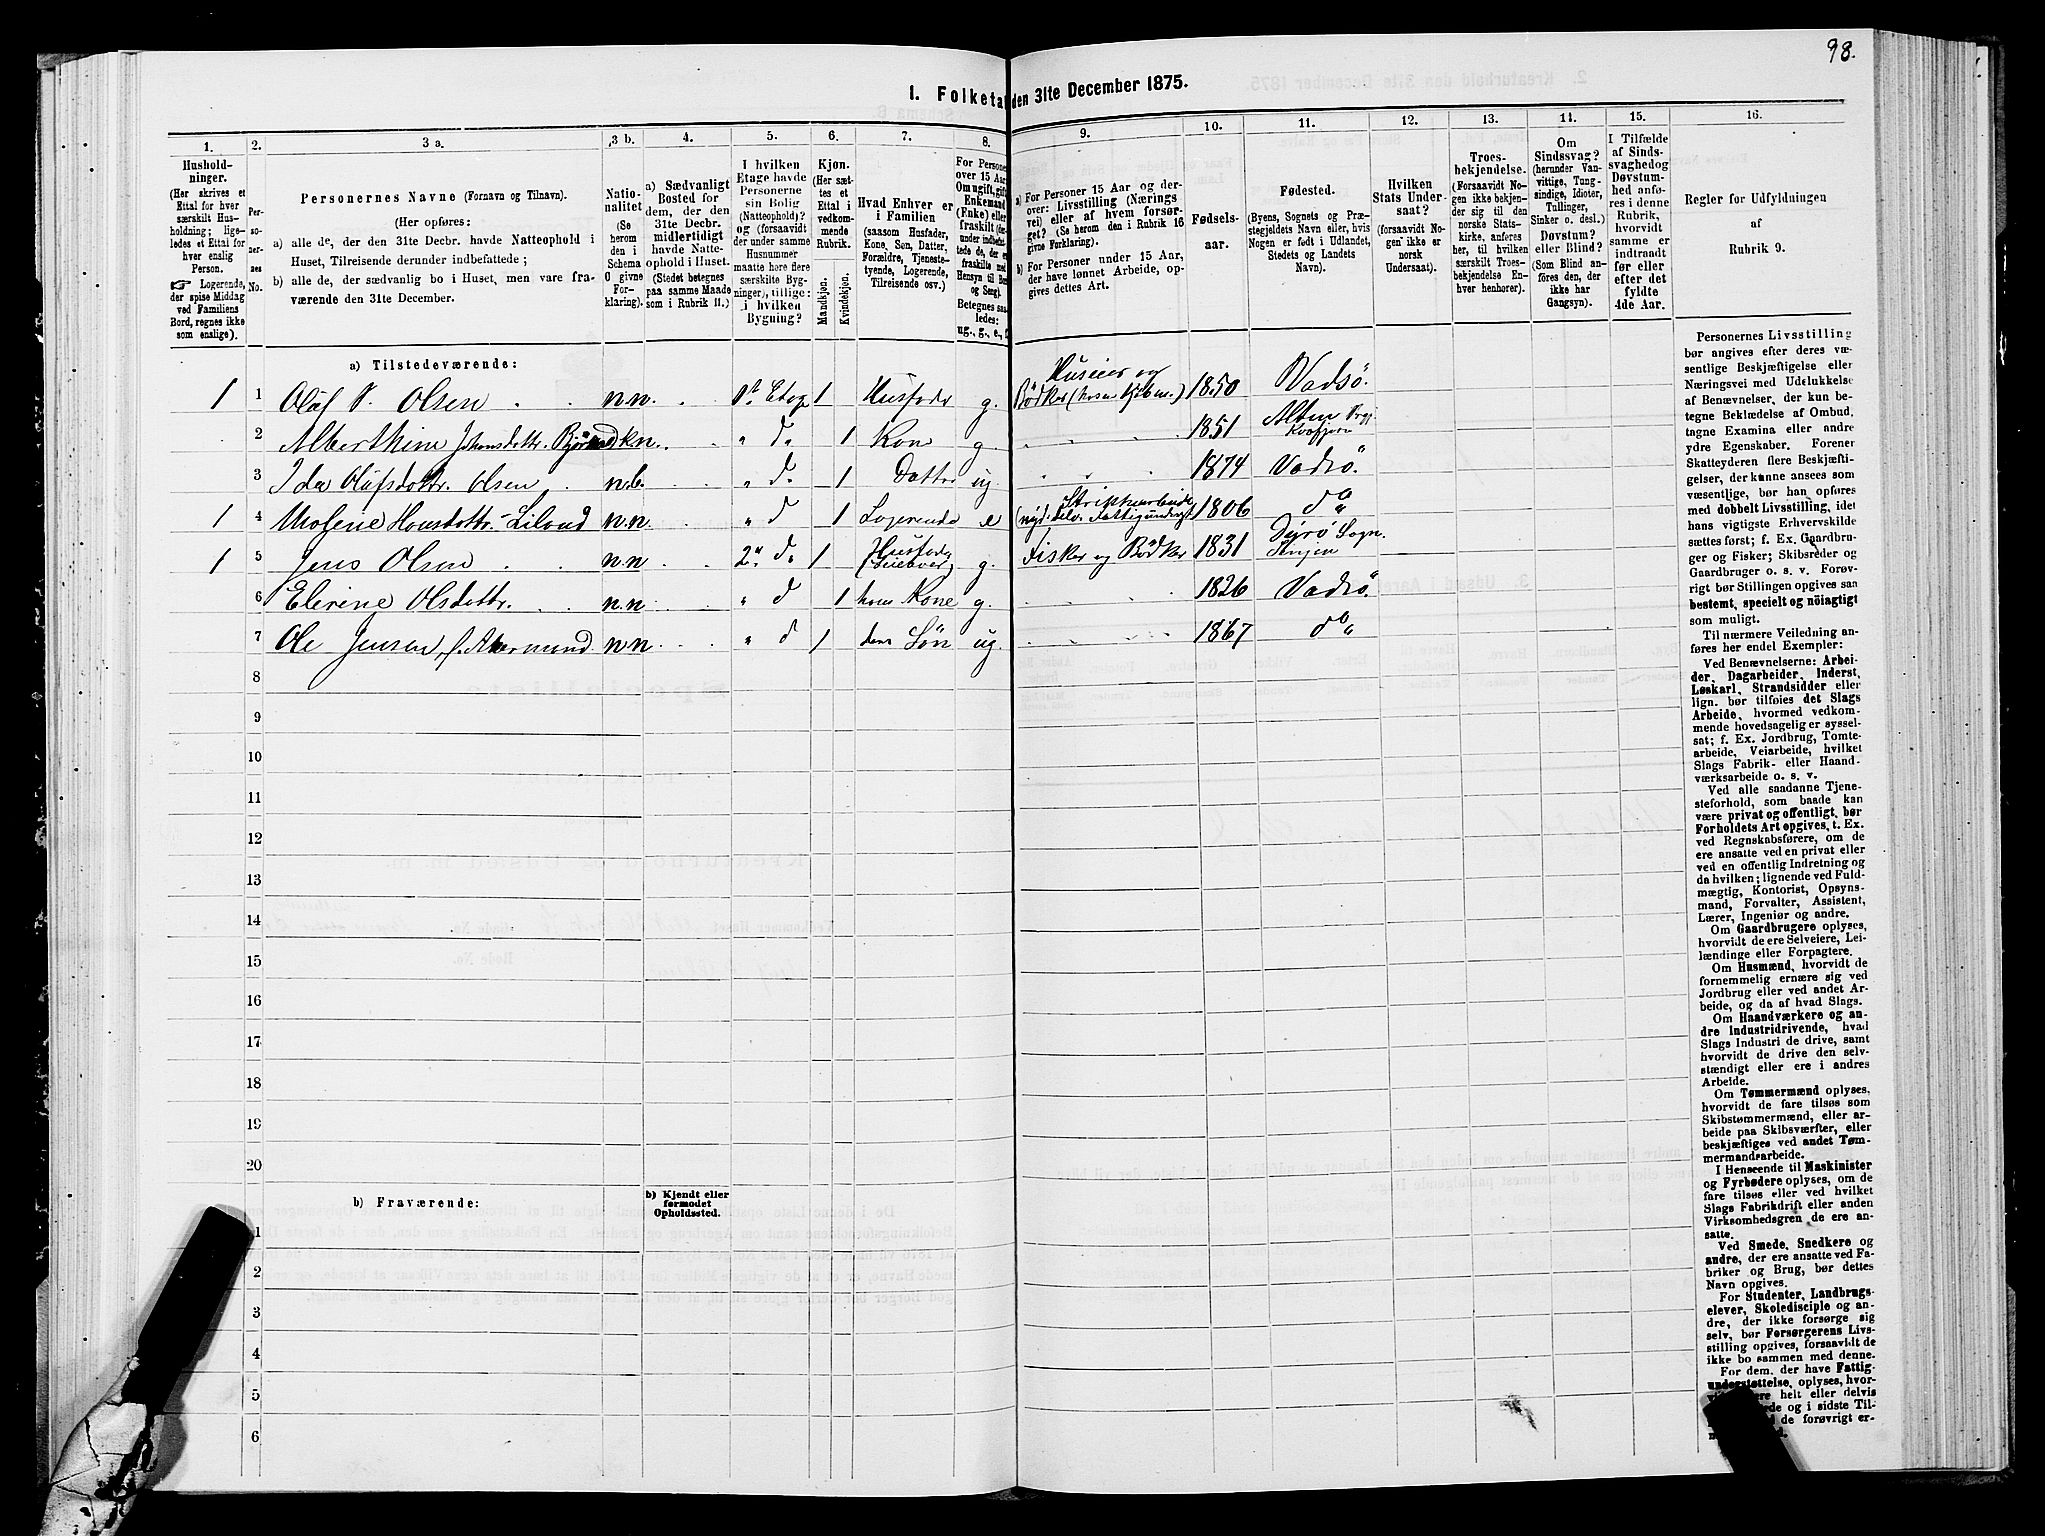 98.
1. Folketal den 31te December 1875.
1.
Hushold-
ninger.
(Her skrives et
Ettal for hver
særskilt Hus-
holdning; lige-
ledes et Ettal for
hver enslig
Person.
☞ Logerende,
der spise Middag
ved Familiens
Bord, regnes ikke
som enslige).
2.
Per-
so-
ner-
nes
No.
3 a.
Personernes Navne (Fornavn og Tilnavn).
(Her opføres:
a) alle de, der den 31te Decbr. havde Natteophold i
Huset, Tilreisende derunder indbefattede;
b) alle de, der sædvanlig bo i Huset, men vare fra-
værende den 31te December.
3 b.
Natio-
nalitet
(Se
herom
den i
Schema
O givne
For-
klaring).
4.
a) Sædvanligt
Bosted for
dem, der den
31te Decbr.
midlertidigt
havde Natte-
ophold i Huset.
(Stedet betegnes
paa samme Maade
som i Rubrik 11.)
5.
I hvilken
Etage havde
Personerne
sin Bolig
(Natteophold)?
og (forsaavidt
der under samme
Husnummer
maatte høre flere
særskilte Byg-
ninger), tillige:
i hvilken
Bygning?
6.
Kjøn.
(Her sæt-
tes et
Ettal i
vedkom-
mende
Rubrik.
Mandkjøn.
Kvindekjøn.
7.
Hvad Enhver er
i Familien
(saasom Husfader,
Kone, Søn, Datter,
Forældre, Tjeneste-
tyende, Logerende,
Tilreisende osv.)
8.
For Personer
over 15 Aar:
Om ugift, gift,
Enkemand
(Enke) eller
fraskilt
Betegnes saa-
ledes:
ug., g., e.,
9.
a) For Personer 15 Aar og der-
over: Livsstilling (Nærings
vei) eller af hvem forsør-
get? (Se herom den i Rubrik 16
givne Forklaring).
b) For Personer under 15 Aar,
der have lønnet Arbeide, op-
gives dettes Art.
10.
Fødsels-
aar.
11.
Fødested.
(Byens, Sognets og Præ-
stegjeldets Navn eller, hvis
Nogen er født i Udlandet,
Stedets og Landets
Navn).
12.
Hvilken
Stats Under-
saat?
(forsaavidt No-
gen ikke er
norsk
Undersaat).
13.
Troes-
bekjendelse.
(Forsaavidt No-
gen ikke bekjen-
der sig til den
norske Stats-
kirke, anføres
her, til hvilken
særskilt Troes-
bekjendelse En-
hver henhører).
14.
Om
Sindssvag?
(herunder Van-
vittige, Tung-
sindige, Idioter,
Tullinger,
Sinker o. desl.)
Døvstum?
eller Blind?
(Som Blind an-
føres den, der
ikke har
Gangsyn).
15.
I Tilfælde
af Sinds-
svaghed og
Døvstum-
hed anfø-
res i denne
Rubrik,
hvorvidt
samme er
indtraadt
før eller
efter det
fyldte
4de Aar.
16.
Regler for Udfyldningen
af
Rubrik 9.
a) Tilstedeværende:
1 1 Oluf P. Olsen n.n. 1st Etage 1 Husfader g. Huseier og Bødker 1850 Vadsø.
2 Alberthine Johansdottr. kn. " d. 1 Kone g. 1851 Alten
3 Ida Olufsdottr. Olsen n.b. " d. 1 Datter ug. 1874 Vadsø.
1 4 Hansdottr. n.n. " d 1 Logerende e 1806 do
1 5 Jens Olsen n.n 2den d. 1 Husfader g. Fisker og Bødker 1831 Sogn.
6 Elerine Olsdottr. n.n " d 1 hans Kone g. 1826 Vadsø.
7 Ole Jensen n.n " d 1 deres Søn ug. 1867 do
8
9
10
11
12
13
14
15
16
17
18
19
20
b) Fraværende:
b) Kjendt eller
formodet
Opholdssted.
1
2
3
4
5
6
Personernes Livsstilling
bør angives efter deres væ-
sentlige Beskjæftigelse eller
Næringsvei med Udelukkelse
af Benævnelser, der kun be-
tegne Beklædelse af Ombud,
tagne Examina eller andre
ydre Egenskaber. Forener
Skatteyderen flere Beskjæfti-
gelser, der kunne ansees som
væsentlige, bør han opføres
med dobbelt Livsstilling, idet
hans vigtigste Erhvervskilde
sættes først; f. Ex. Gaardbru-
ger og Fisker; Skibsreder og
Gaardbruger o. s. v. Forøv-
rigt bør Stillingen opgives saa
bestemt, specielt og nøiagtigt
som muligt.
Til nærmere Veiledning an-
føres her endel Exempler:
Ved Benævnelserne: Arbei-
der, Dagarbeider, Inderst,
Løskarl, Strandsidder eller
lign. bør tilføies det Slags
Arbeide, hvormed vedkom-
mende hovedsagelig er syssel-
sat; f. Ex. Jordbrug, Tomte-
arbeide, Veiarbeide, hvilket
Slags Fabrik- eller Haand-
værksarbeide o. s. v.
Ved alle saadanne Tjene-
steforhold, som baade kan
være privat og offentligt, bør
Forholdets Art opgives, t. Ex.
ved Regnskabsførere, om de
ere ansatte ved en privat eller
ved en offentlig Indretning og
da hvilken; lignende ved Fuld-
mægtig, Kontorist, Opsyns-
mand, Forvalter, Assistent,
Lærer, Ingeniør og andre.
Om Gaardbrugere oplyses,
hvorvidt de ere Selveiere, Lei-
lændinge eller Forpagtere.
Om Husmænd, hvorvidt de
fornemmelig ernære sig ved
Jordbrug eller ved andet Ar-
beide, og da af hvad Slags.
Om Haandværkere og an-
dre Industridrivende, hvad
Slags Industri de drive, samt
hvorvidt de drive den selv-
stændigt eller ere i andres
Arbeide.
Om Tømmermænd oplyses,
hvorvidt de fare tilsøs som
Skibstømmermænd, eller ar-
beide paa Skibsværfter, eller
beskjæftiges ved andet Tøm-
mermandsarbeide.
I Henseende til Maskinister
og Fyrbødere oplyses, om de
fare tilsøs eller ved hvilket
Slags Fabrikdrift eller anden
Virksomhedsgren de ere an-
satte.
Ved Smede, Snedkere og
andre, der ere ansatte ved Fa-
briker og Brug, bør dettes
Navn opgives.
For Studenter, Landbrugs-
elever, Skoledisciple og an-
dre, der ikke forsørge sig
selv, bør Forsørgerens Livs-
stilling opgives, forsaavidt de
ikke bo sammen med denne.
For dem, der have Fattig-
understøttelse, oplyses, hvor-
helt eller delvis
og i sidste Til-
de forøvrigt er-